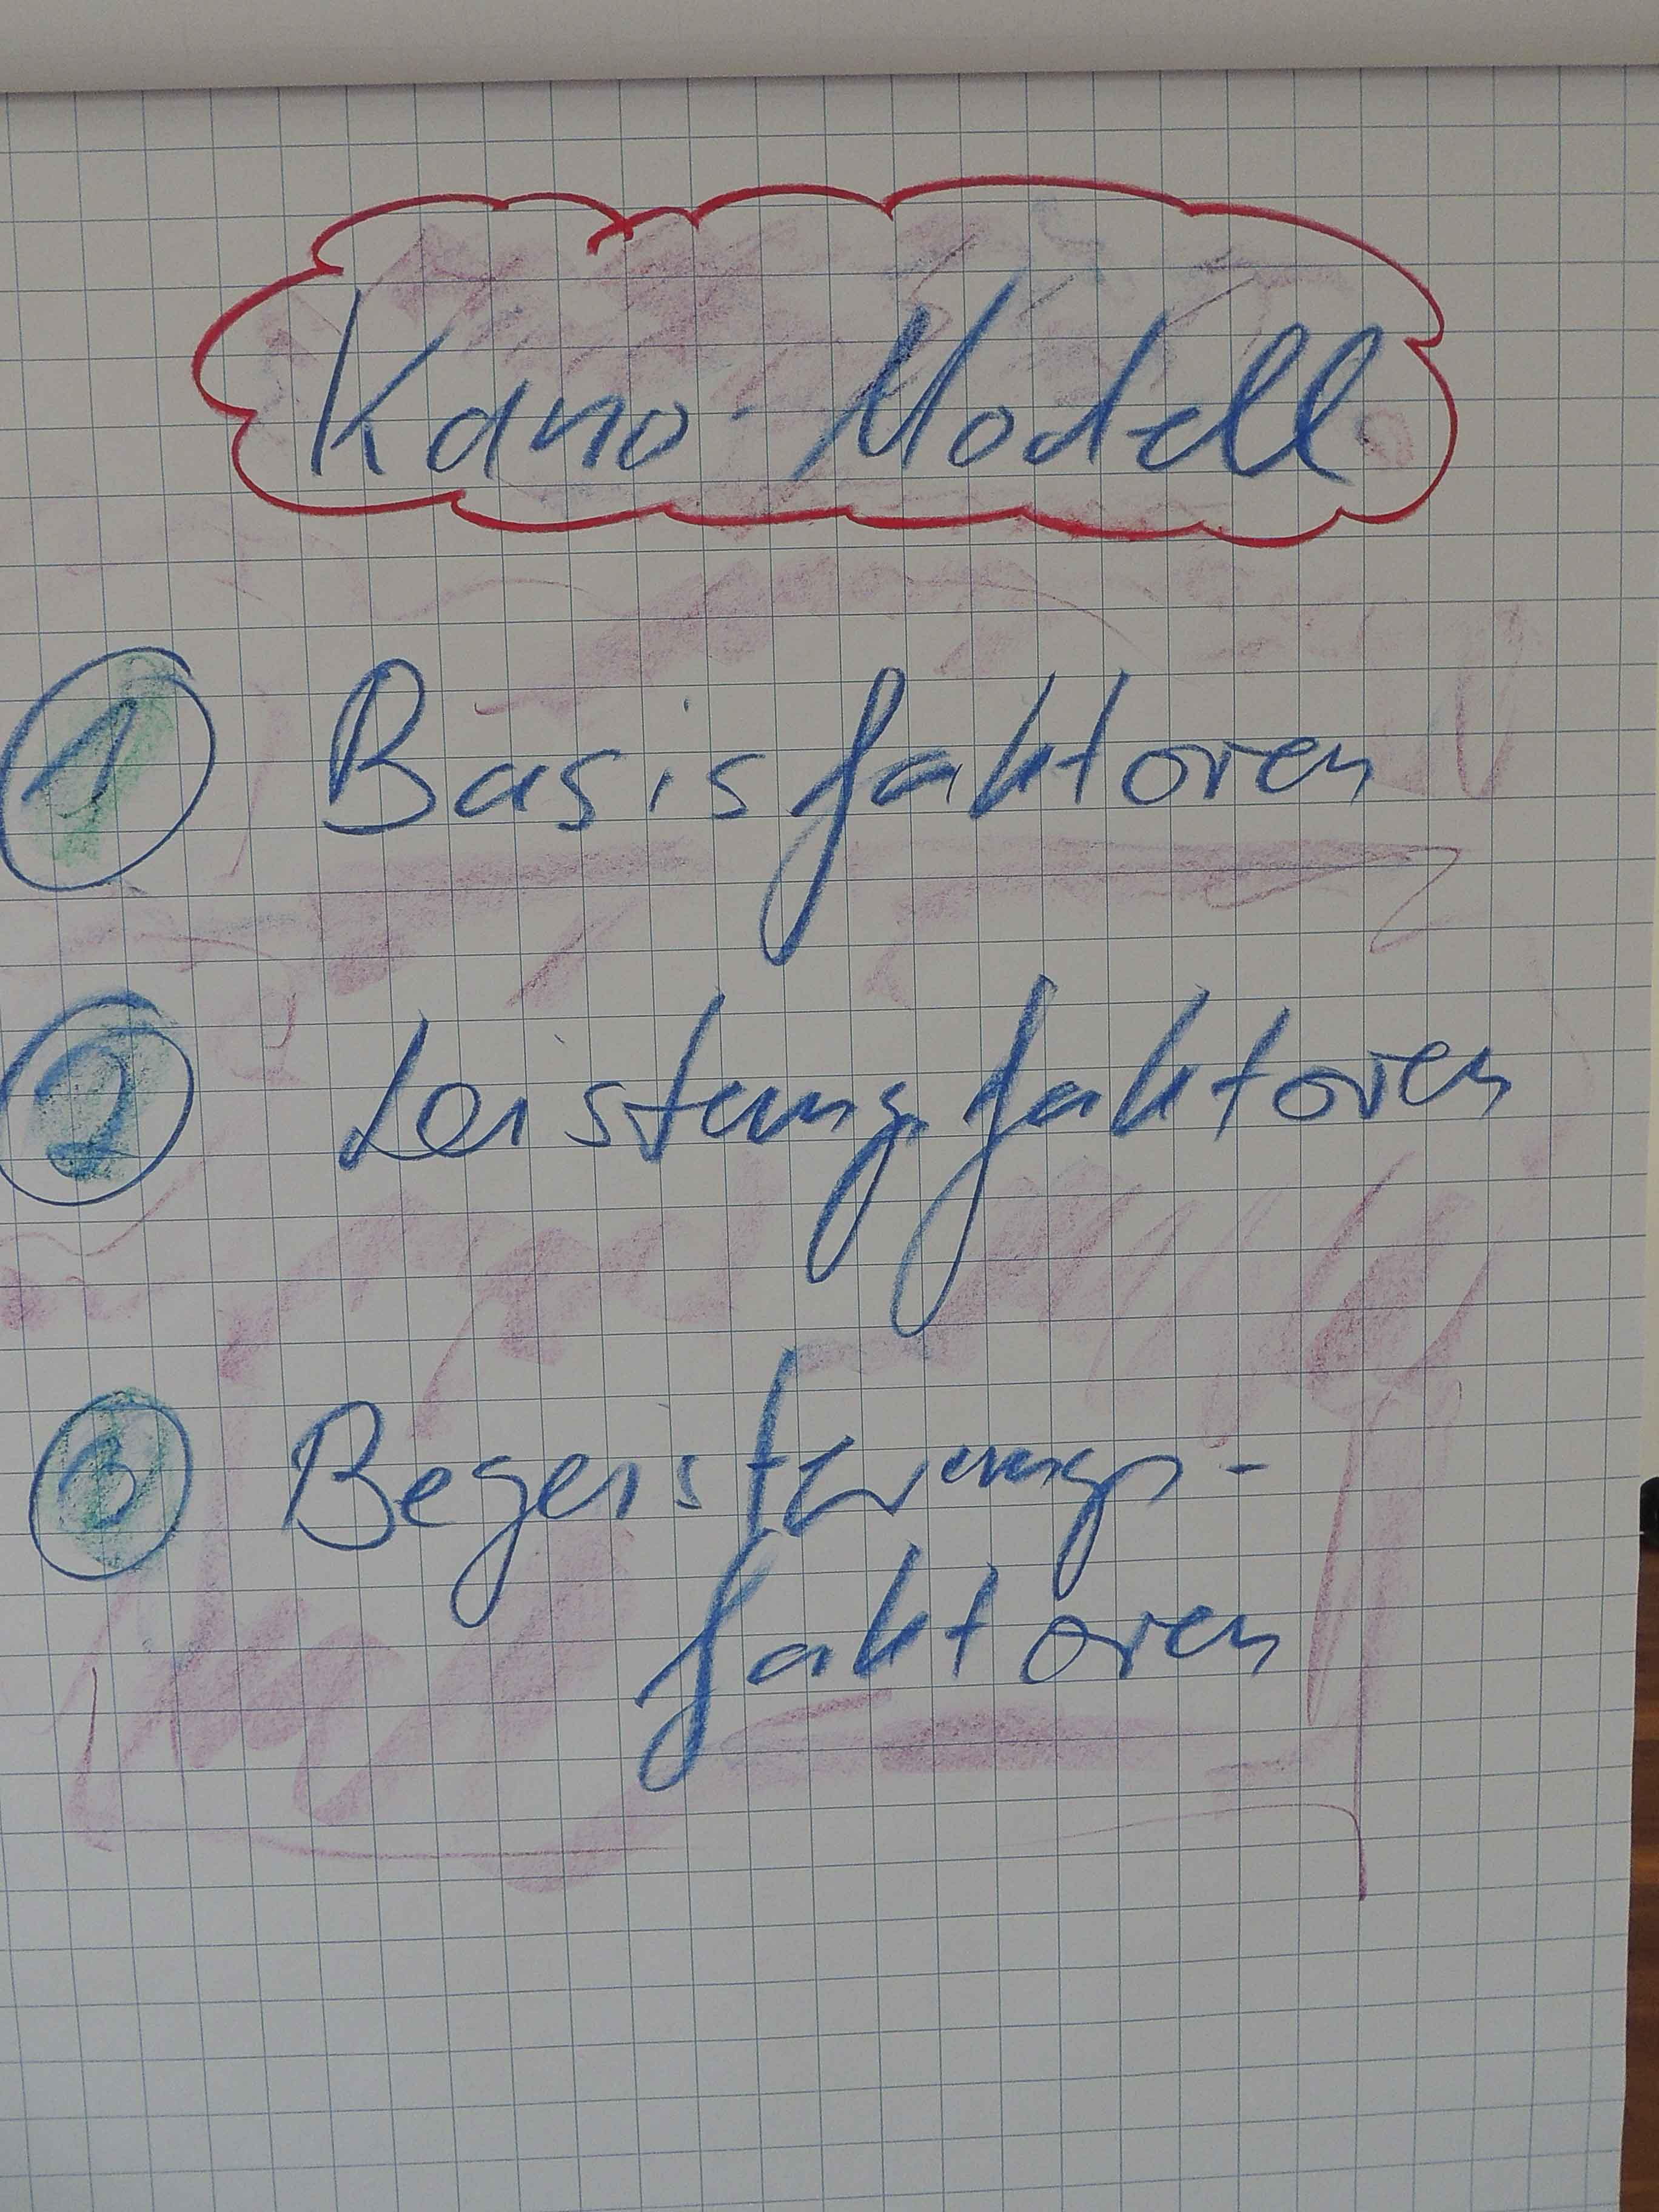 Kano-Modell
1 Basisfaktoren
2 Leistungsfaktoren
3 Begeisterungs-
faktoren